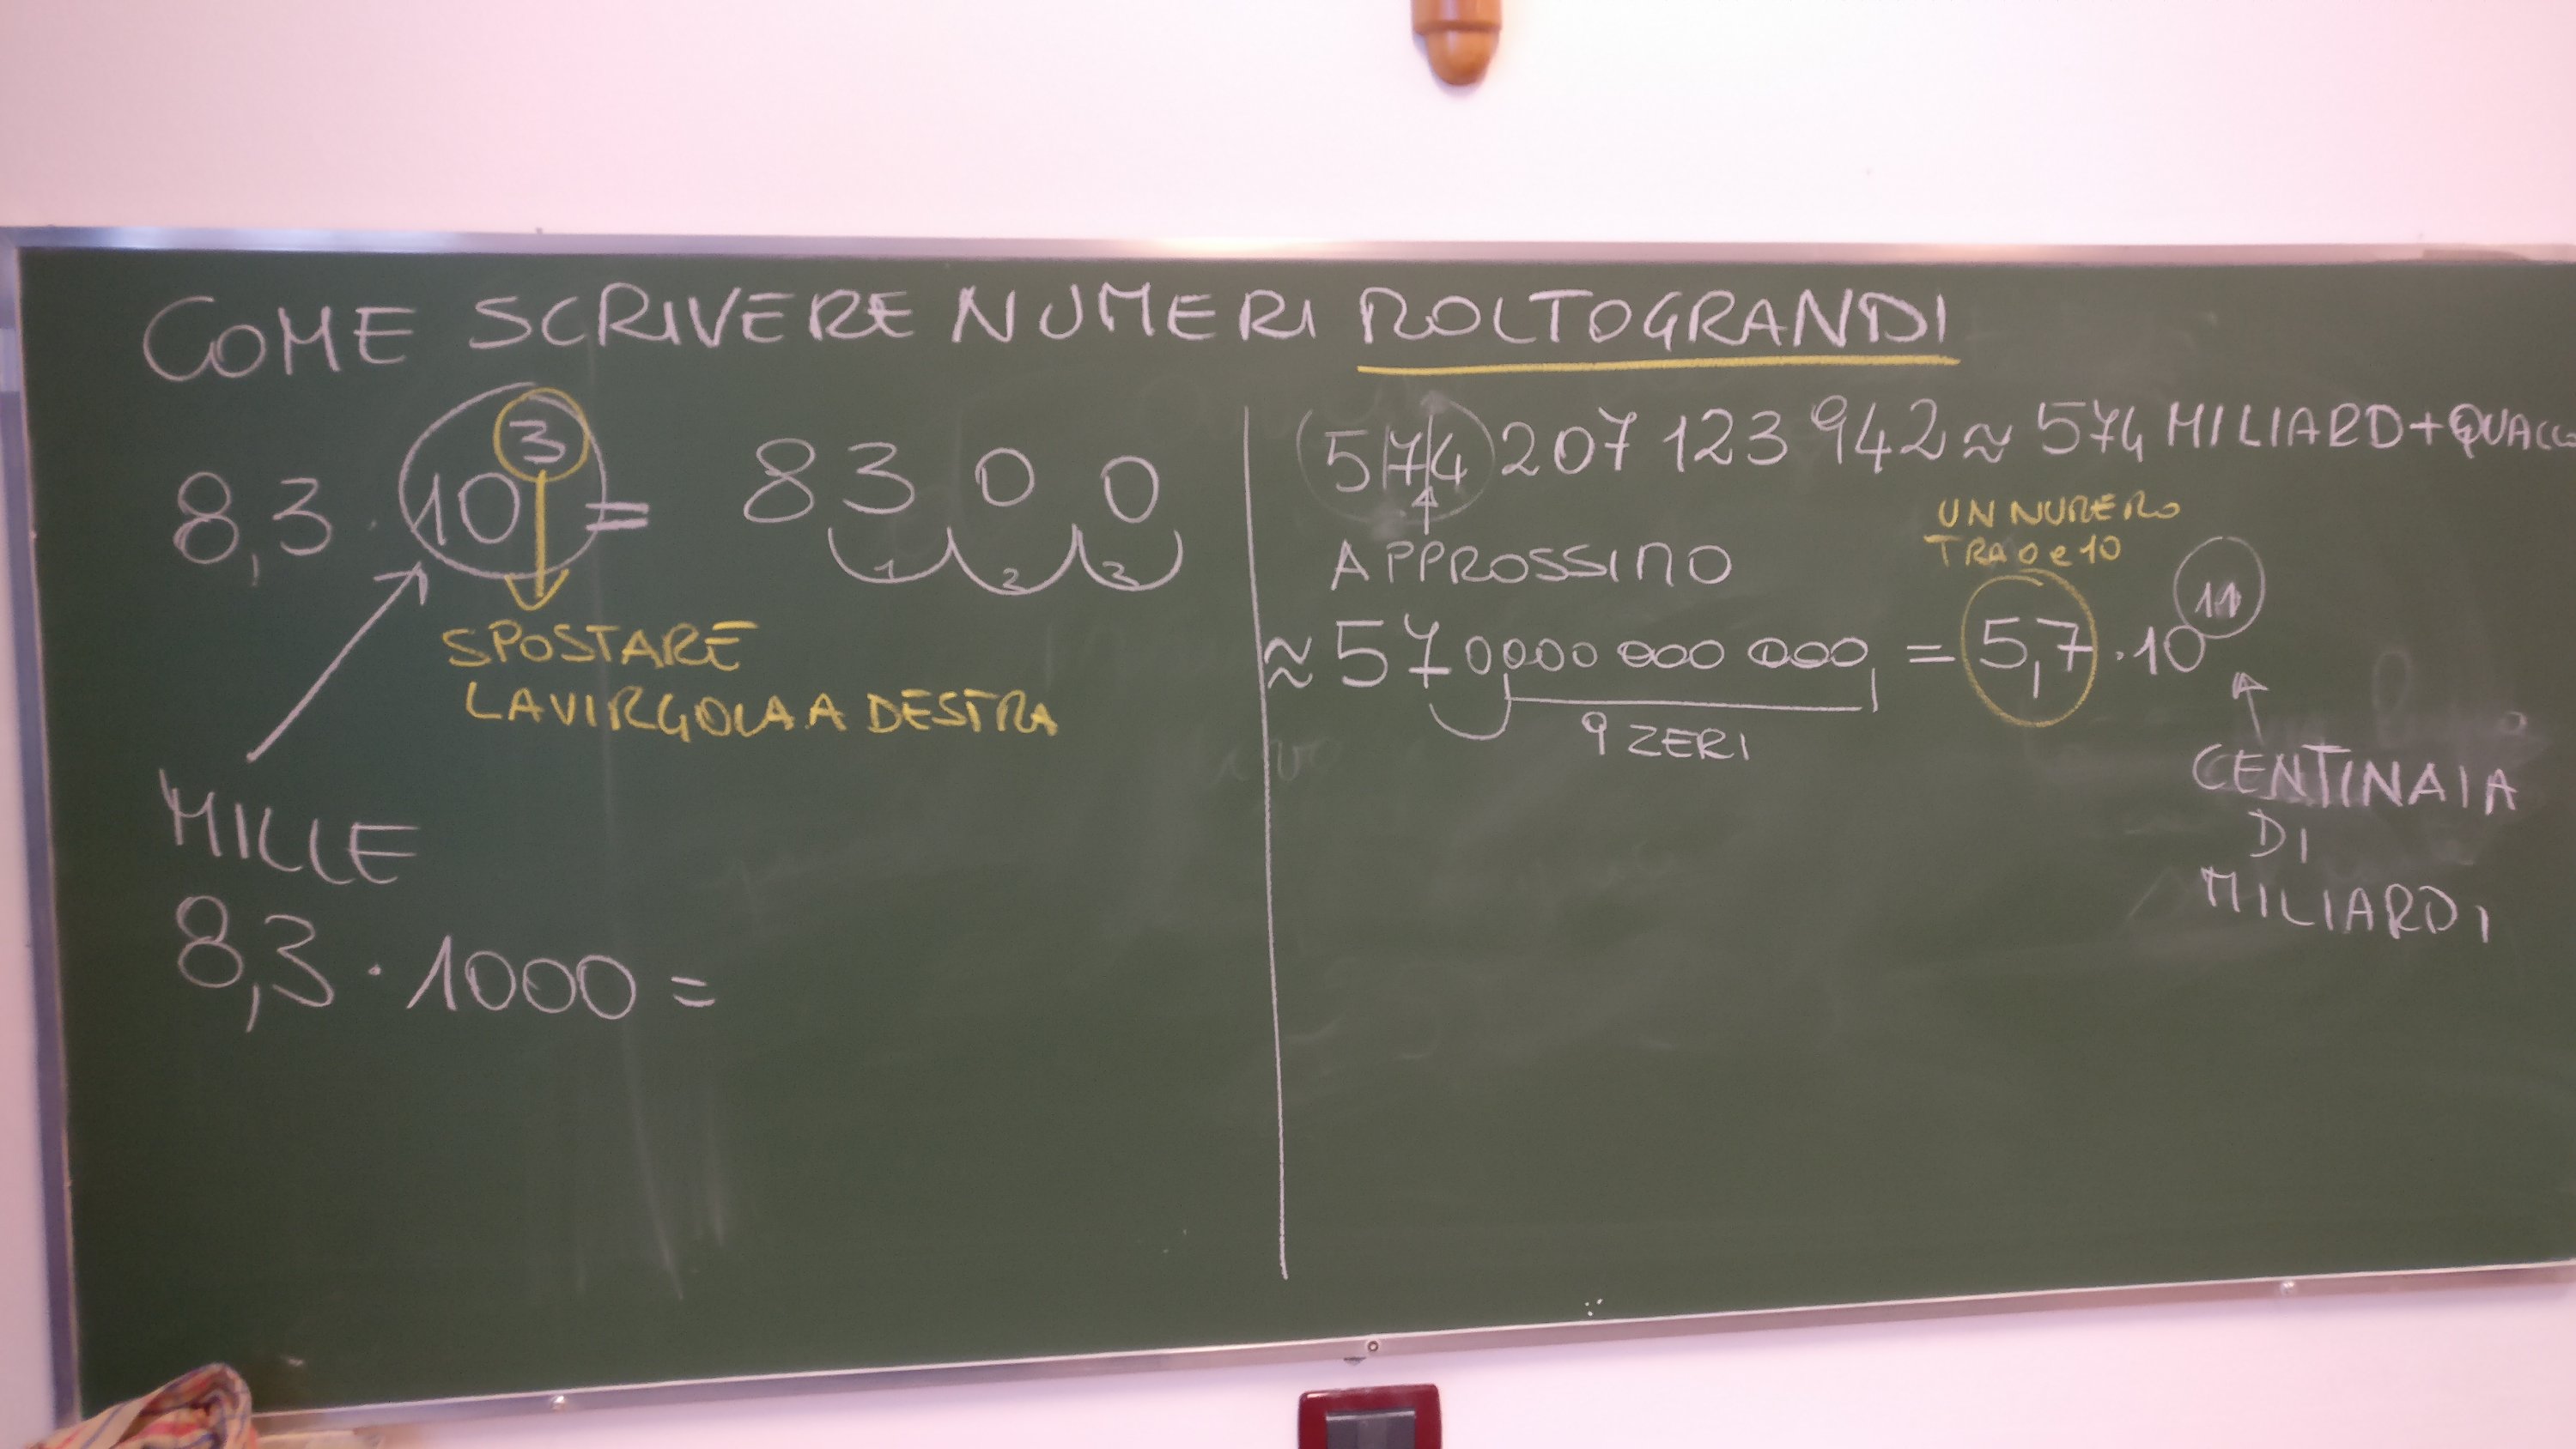 COME SCRIVERE NUMERI MOLTO GRANDI
8,3 · 10³ = 8300
1 2 3
SPOSTARE
LA VIRGOLA A DESTRA
MILLE
8,3 · 1000 =
574 207 123 942 ≈ 574 MILIARD + QUALC
APPROSSIMO
UN NUMERO
TRA 0 e 10
≈ 570 000 000 000 = 5,7 · 10¹¹
9 ZERI
CENTINAIA
DI
MILIARDI